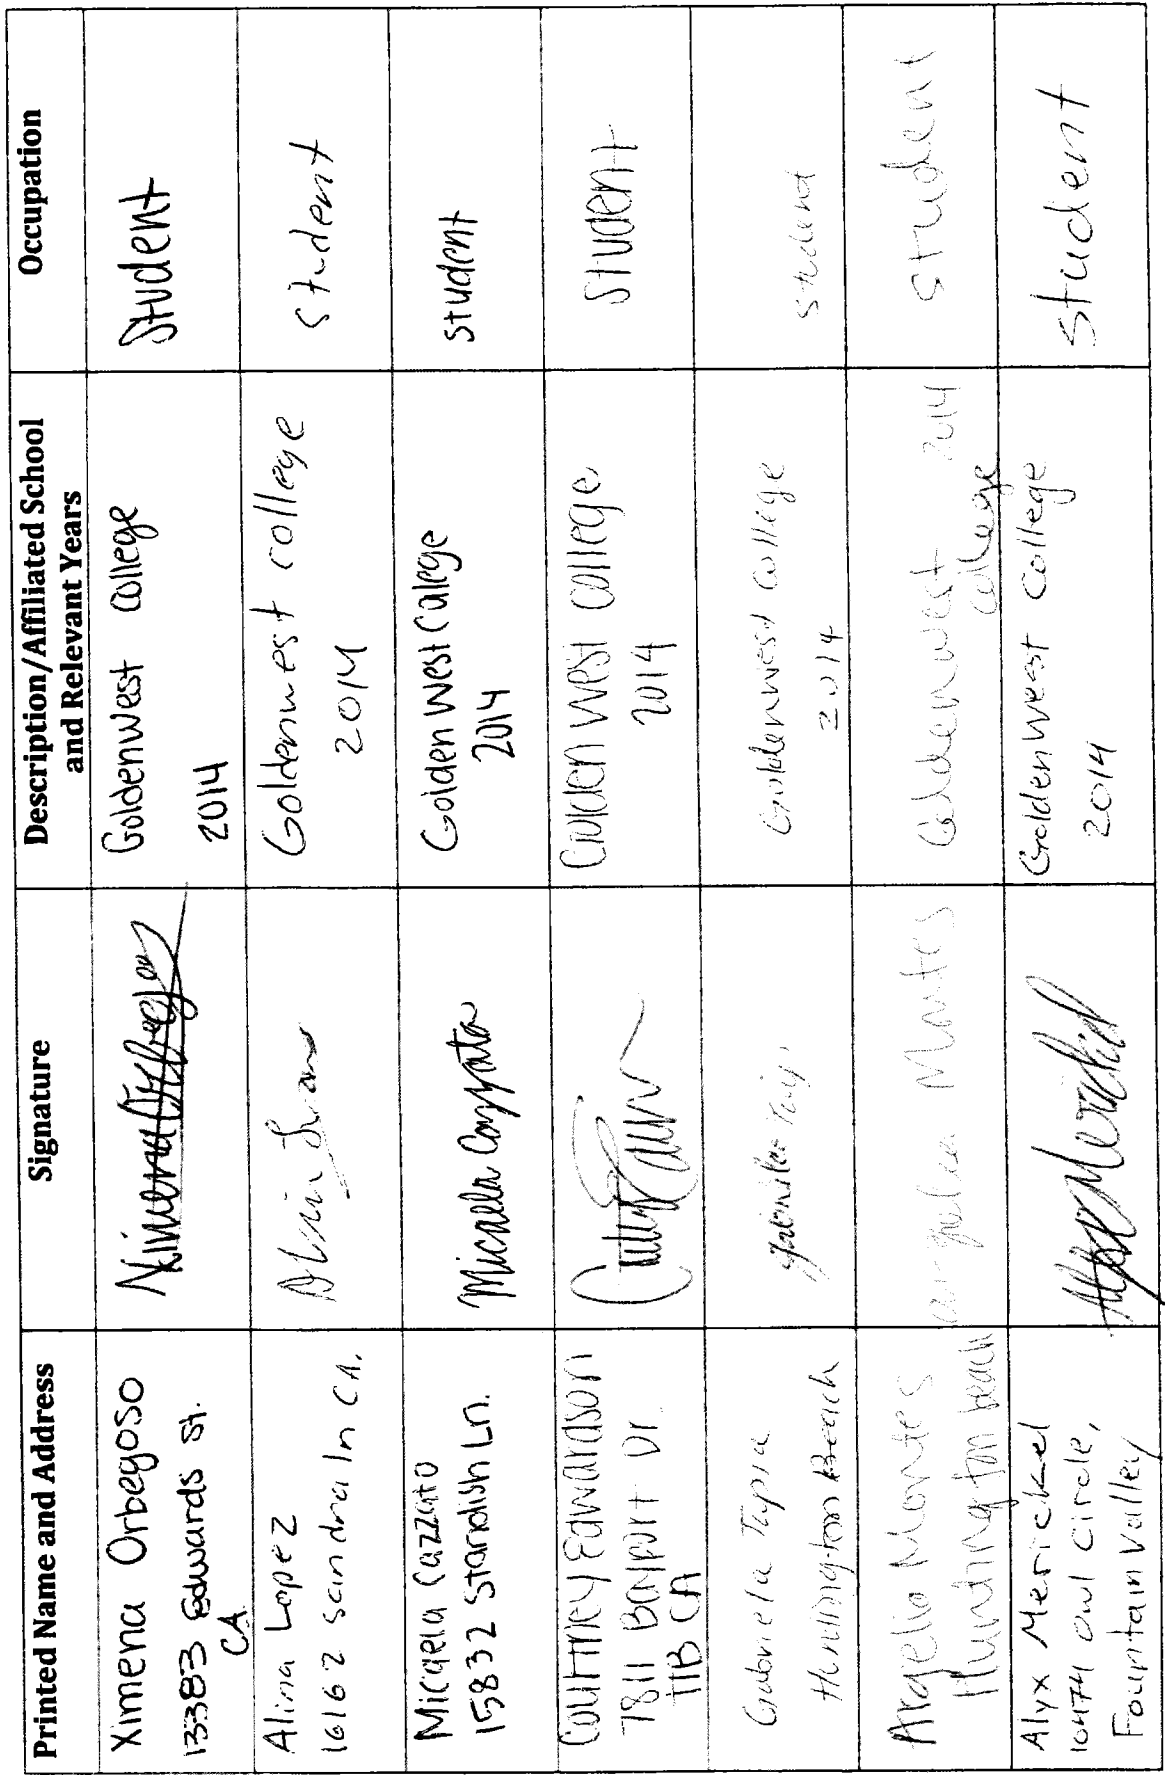 Printed Name and Address
Signature
Description/Affiliated School
and Relevant Years
Occupation
Ximena Orbegoso
13383 Edwards St.
CA
Goldenwest college
2014
Student
Alina Lopez
16162 Sandra ln CA.
Goldenwest college
2014
student
Micaela Cazzato
15832 Standish Ln.
Micaela Cazzato
Golden West Callege
2014
student
Courtney Edwardson
7811 Bayport Dr.
HB CA
Golden West college
2014
Student
Gabriela Tapia
Huntington Beach
Goldenwest college
2014
student
Argelia Montes
Hundington beach
argelia Montes
Goldenwest 2014
college
student
Alyx Merickel
10474 owl circle,
Fountain Valley
Alyx Merickel
Goldenwest College
2014
student